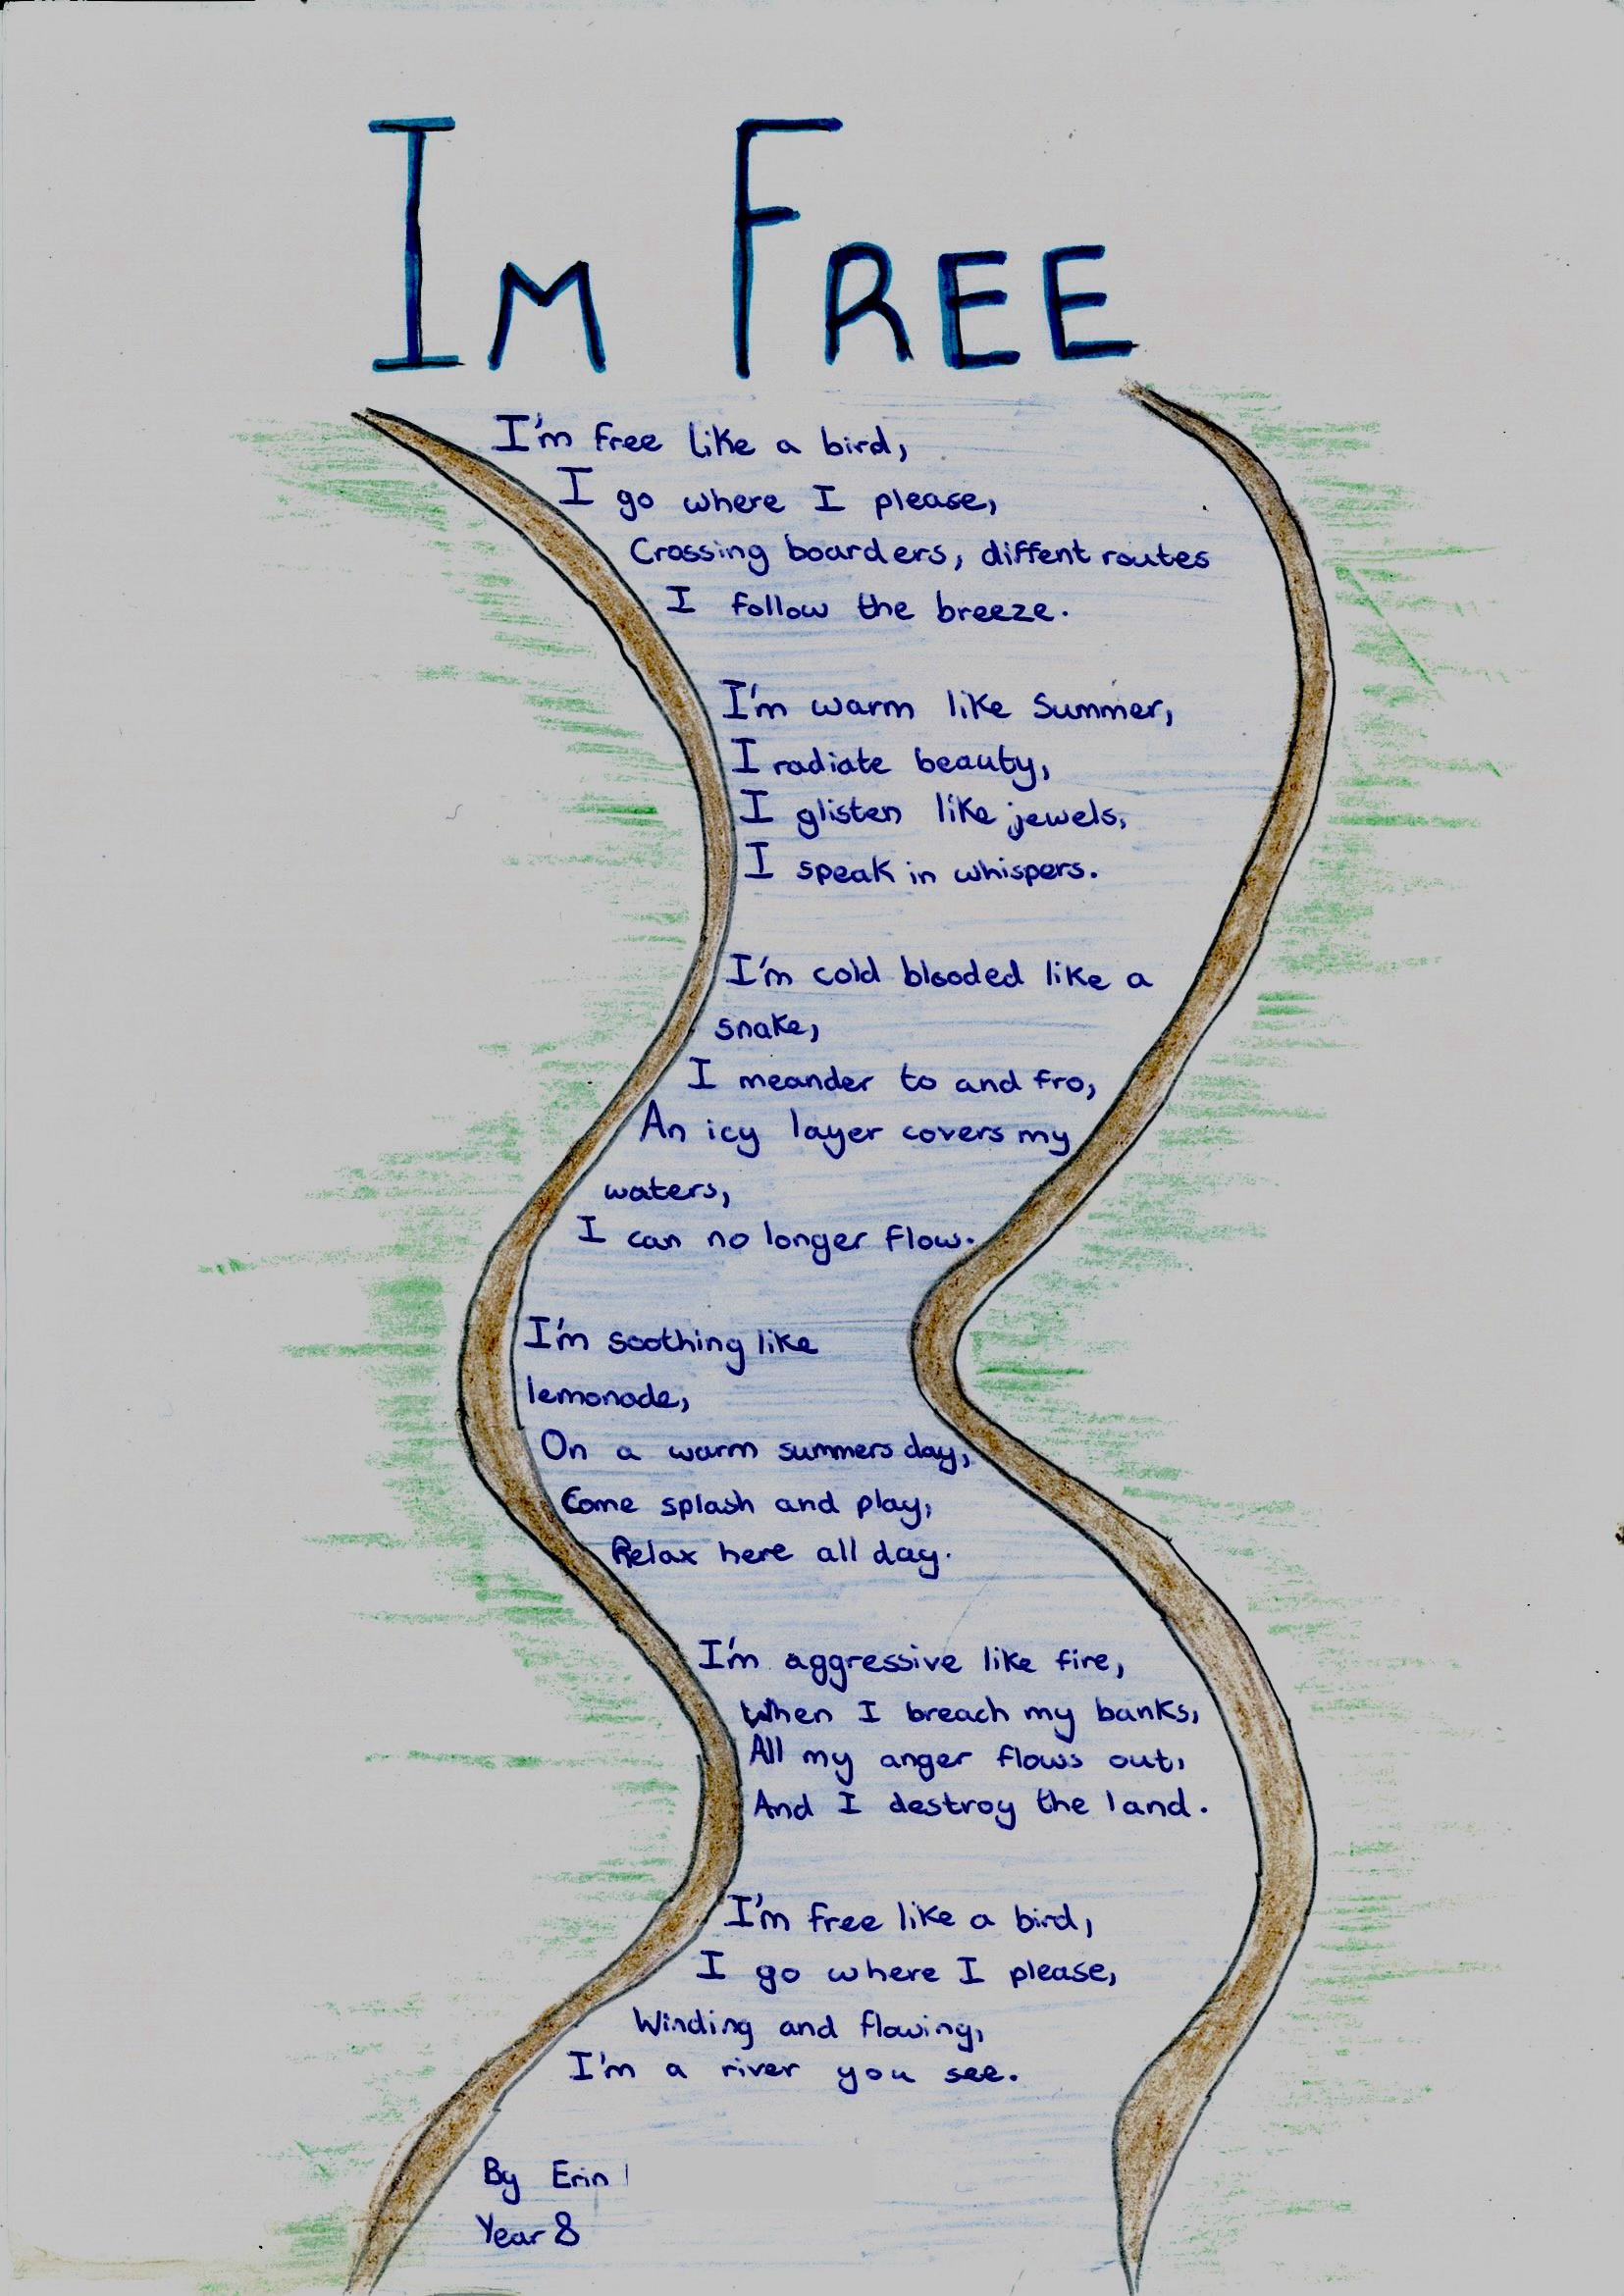 IM FREE
I'm free like a bird,
I go where I please,
Crossing boarders, diffent routes
I follow the breeze.
I'm warm like Summer,
I radiate beauty,
I glisten like jewels,
I speak in whispers.
I'm cold blooded like a
snake,
I meander to and fro,
An icy layer covers my
waters,
I can no longer flow.
I'm soothing like
lemonade,
On a warm summers day,
Come splash and play,
Relax here all day.
I'm aggressive like fire,
When I breach my banks,
All my anger flows out,
And I destroy the land.
I'm free like a bird,
I go where I please,
Winding and flowing,
I'm a river you see.
By Erin
Year 8